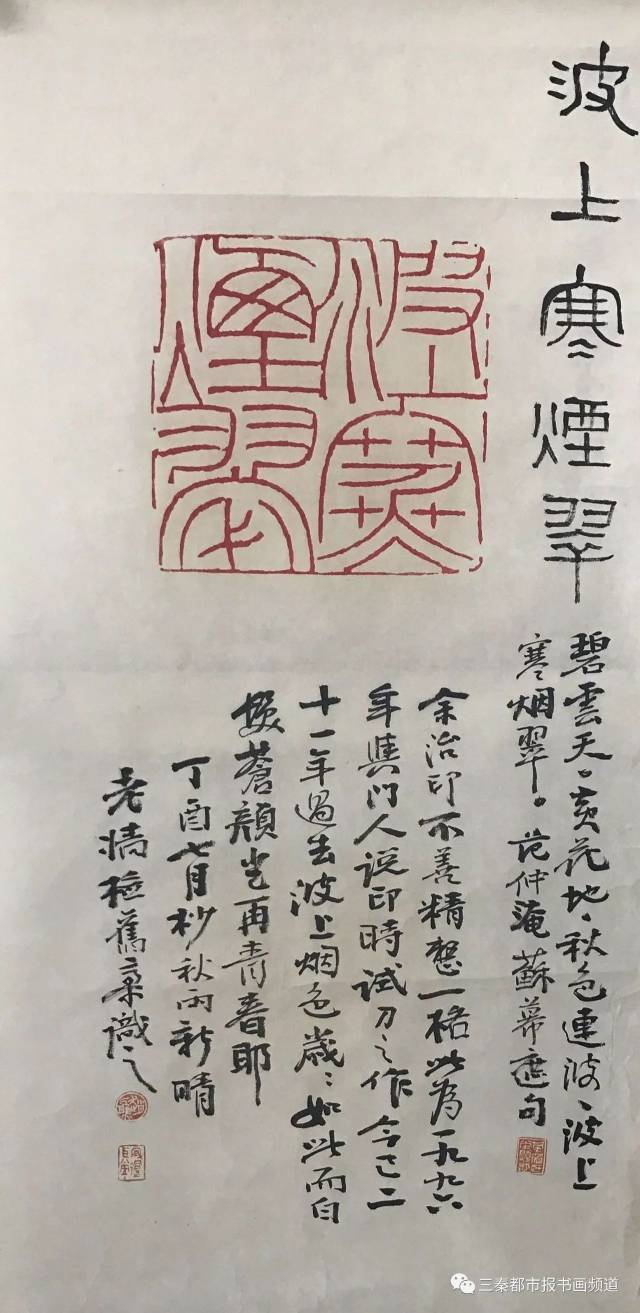 波上寒煙翠
波上寒煙翠
碧雲天、黃花地、秋色連波、波上
寒烟翠。范仲淹蘇幕遮句
余治印不善精整一格此為一九九六
年與門人說印時試刀之作今已二
十一年過去波上烟色歲〻如此而白
髮蒼顏豈再青春耶
丁酉七月杪秋雨新晴
老濤檢舊稾識之
三秦都市报书画频道